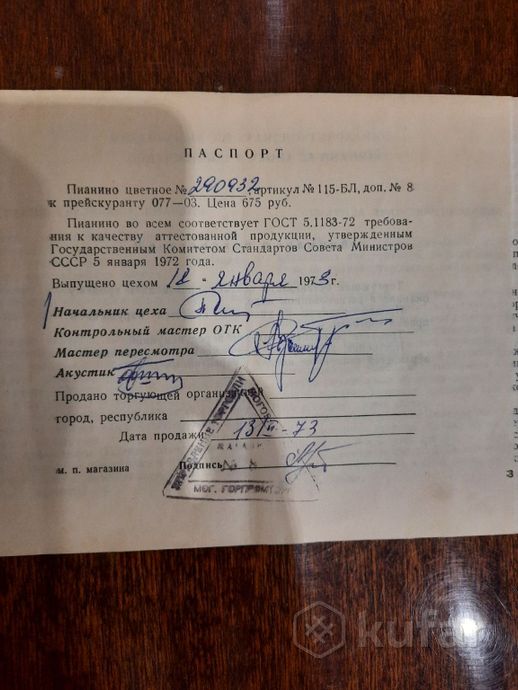 ПАСПОРТ
Пианино цветное № 290932, артикул № 115-БЛ, доп. № 8
к прейскуранту 077—03. Цена 675 руб.
Пианино во всем соответствует ГОСТ 5.1183-72 требова-
ния к качеству аттестованной продукции, утвержденным
Государственным Комитетом Стандартов Совета Министров
СССР 5 января 1972 года.
Выпущено цехом 12 - января 1973г.
Начальник цеха
Контрольный мастер ОТК
Мастер пересмотра
Акустик
Продано торгующей организацией
город, республика
Дата продажи 13/II-73
м. п. магазина Подпись
№ 8
МОГ. ГОРПРОМТОРГ
3
kufar